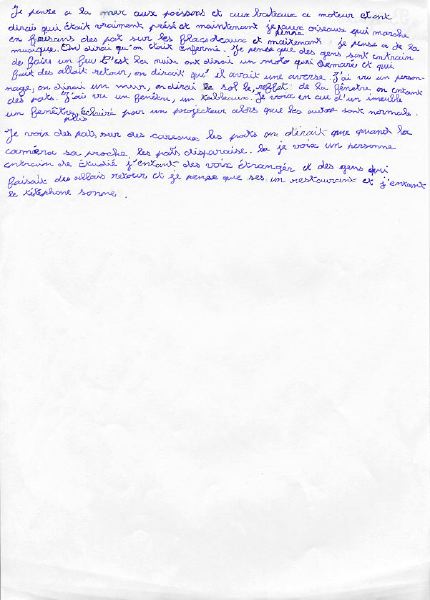 Je pense a la mer aux poissons et aux bateaux a moteur et ont
dirais qui était vraiment prés et maintenant je pense oiseaux qui marche
en faisans des pas sur les flaques d'eaux et maitenant je pense a de la
musique. On dirai qu'on était enfermé. Je pense que des gens sont entrain
de faire un feu C'est la nuis ont dirai un moto qui démare et qui
fait des allait retour, on dirait qu'il avait une averse. J'ai vu un person-
nage, on dirai un mur, on dirai le sol, le reflet de la fenêtre on entant
des pas. J'ai vu un fenêtre, un tableaux. Je voix en cu d'un imeuble
un fenêtre plus éclairé par un projecteur alors que les autres sont normals.
Je voix des pats sur des carreaux les pats on dirait que quant la
caméra sa proche les pats disparaise. la je voix un personne
entraim de étudié j'entant des voix étrangér et des gens qui
faisait des allais retour et je pense que ses un restaurant et j'entant
le téléphone sonné.